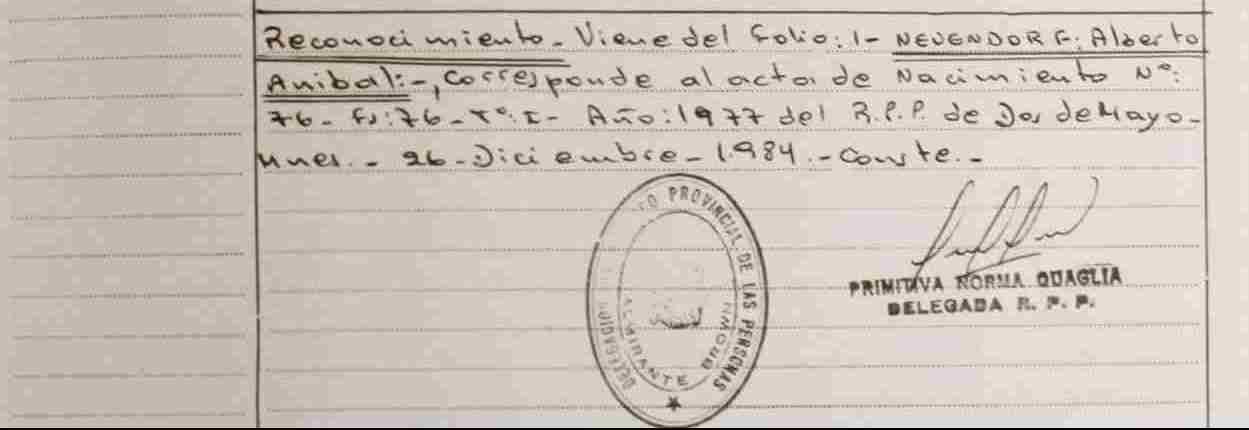 Reconocimiento - Viene del Folio: 1 - NEUENDORF: Alberto
Anibal:-, Corresponde al acta de Nacimiento Nº:
76 - Fº: 76 - Tº: I - Año: 1977 del R.P.P. de Dos de Mayo -
Mnes. - 26 - Diciembre - 1.984 .- Conste. -
PROVINCIAL DE LAS PERSONAS
ALMIRANTE BROWN
PRIMITIVA NORMA QUAGLIA
DELEGADA R. P. P.